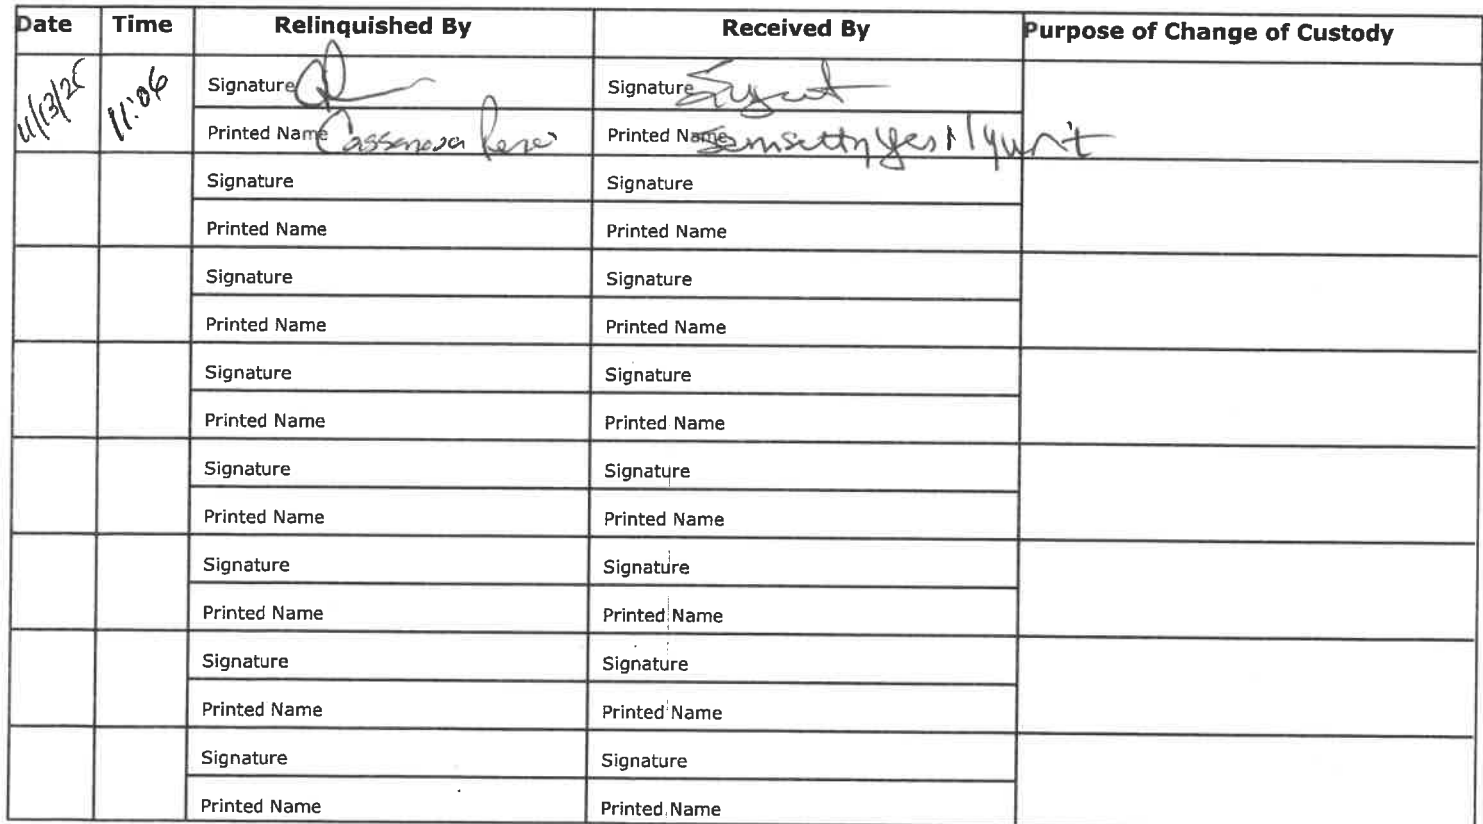 Date Time Relinquished By Received By Purpose of Change of Custody
11:06 Signature Signature
Printed Name Cassanova Printed Name
Signature Signature
Printed Name Printed Name
Signature Signature
Printed Name Printed Name
Signature Signature
Printed Name Printed Name
Signature Signature
Printed Name Printed Name
Signature Signature
Printed Name Printed Name
Signature Signature
Printed Name Printed Name
Signature Signature
Printed Name Printed Name